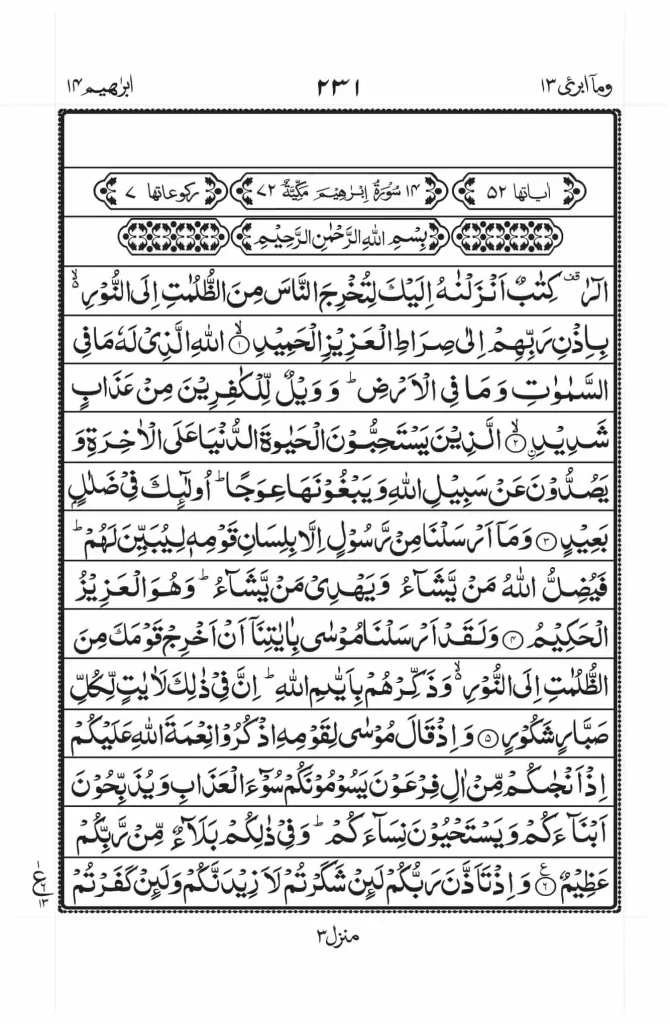 وما ابرئ ١٣ ٢٣١ ابرٰهيم ١٤
اياتها ٥٢ ١٤ سُوْرَةُ اِبْرٰهِيْمَ مَكِّيَّةٌ ٧٢ ركوعاتها ٧
بِسْمِ اللهِ الرَّحْمٰنِ الرَّحِيْمِ
الٓرٰ ۫ كِتٰبٌ اَنْزَلْنٰهُ اِلَيْكَ لِتُخْرِجَ النَّاسَ مِنَ الظُّلُمٰتِ اِلَى النُّوْرِ ۙ
بِاِذْنِ رَبِّهِمْ اِلٰى صِرَاطِ الْعَزِيْزِ الْحَمِيْدِ ۙ ﴿١﴾ اللهِ الَّذِىْ لَهٗ مَا فِى
السَّمٰوٰتِ وَمَا فِى الْاَرْضِ ؕ وَ وَيْلٌ لِّلْكٰفِرِيْنَ مِنْ عَذَابٍ
شَدِيْدِ ۙ ﴿٢﴾ ۨالَّذِيْنَ يَسْتَحِبُّوْنَ الْحَيٰوةَ الدُّنْيَا عَلَى الْاٰخِرَةِ وَ
يَصُدُّوْنَ عَنْ سَبِيْلِ اللهِ وَيَبْغُوْنَهَا عِوَجًا ؕ اُولٰٓئِكَ فِىْ ضَلٰلٍۭ
بَعِيْدٍ ﴿٣﴾ وَمَاۤ اَرْسَلْنَا مِنْ رَّسُوْلٍ اِلَّا بِلِسَانِ قَوْمِهٖ لِيُبَيِّنَ لَهُمْ ؕ
فَيُضِلُّ اللهُ مَنْ يَّشَآءُ وَيَهْدِىْ مَنْ يَّشَآءُ ؕ وَهُوَ الْعَزِيْزُ
الْحَكِيْمُ ﴿٤﴾ وَلَقَدْ اَرْسَلْنَا مُوْسٰى بِاٰيٰتِنَاۤ اَنْ اَخْرِجْ قَوْمَكَ مِنَ
الظُّلُمٰتِ اِلَى النُّوْرِ ۙ وَذَكِّرْهُمْ بِاَيّٰىمِ اللهِ ؕ اِنَّ فِىْ ذٰلِكَ لَاٰيٰتٍ لِّكُلِّ
صَبَّارٍ شَكُوْرٍ ﴿٥﴾ وَاِذْ قَالَ مُوْسٰى لِقَوْمِهِ اذْكُرُوْا نِعْمَةَ اللهِ عَلَيْكُمْ
اِذْ اَنْجٰىكُمْ مِّنْ اٰلِ فِرْعَوْنَ يَسُوْمُوْنَكُمْ سُوْٓءَ الْعَذَابِ وَيُذَبِّحُوْنَ
اَبْنَآءَكُمْ وَيَسْتَحْيُوْنَ نِسَآءَكُمْ ؕ وَفِىْ ذٰلِكُمْ بَلَآءٌ مِّنْ رَّبِّكُمْ
عَظِيْمٌ ﴿٦﴾ ع وَاِذْ تَاَذَّنَ رَبُّكُمْ لَئِنْ شَكَرْتُمْ لَاَزِيْدَنَّكُمْ وَلَئِنْ كَفَرْتُمْ
ع ١٣
منزل ٣